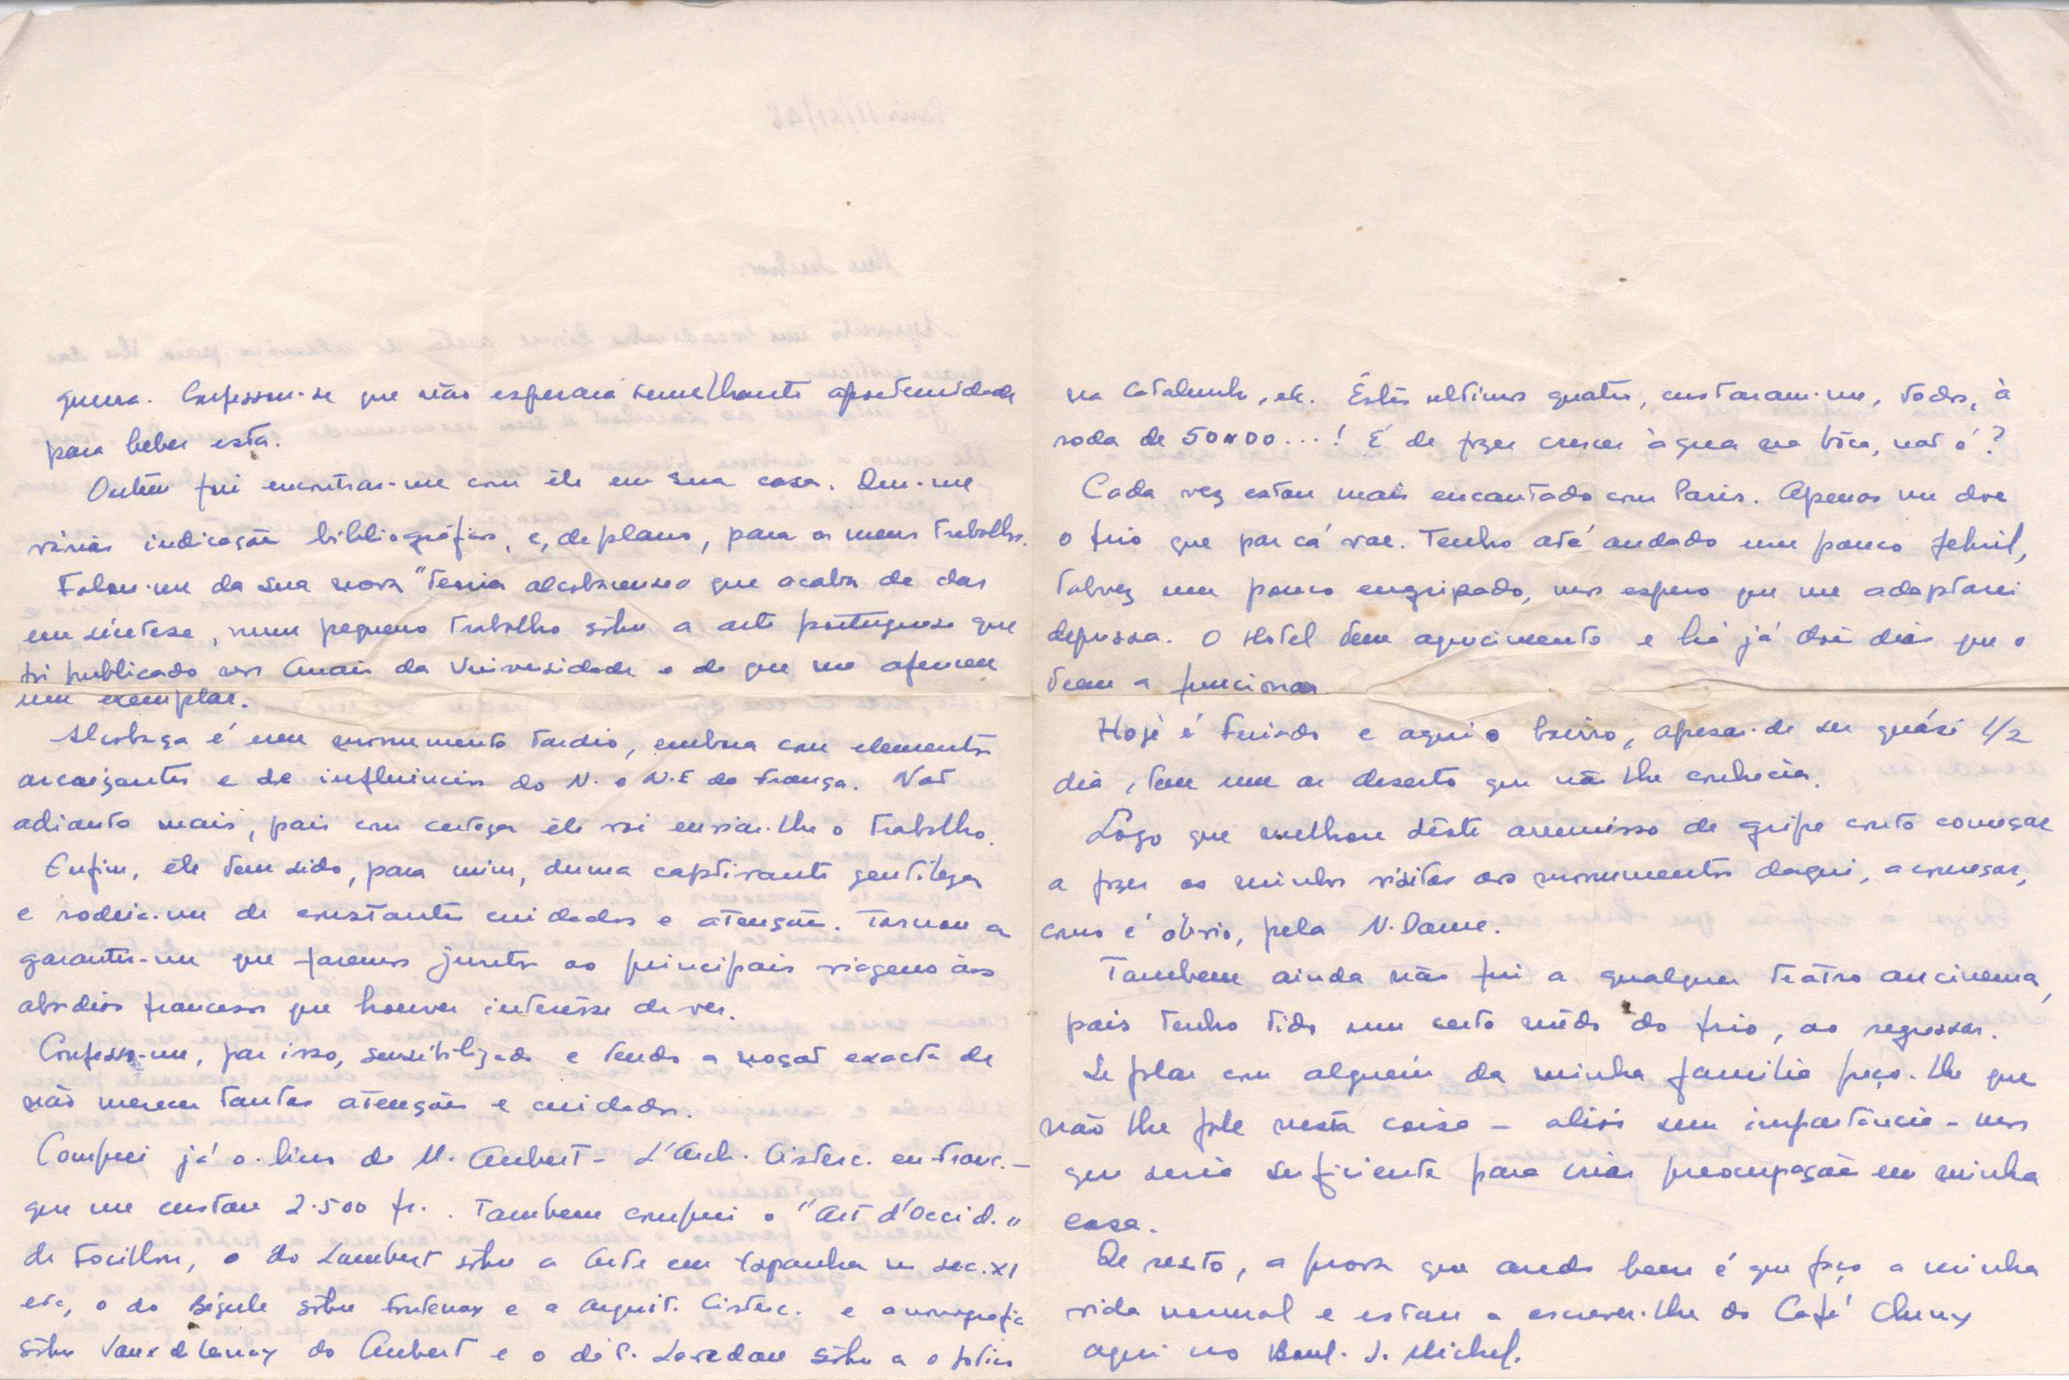 guerra. Confessou-se que não esperava semelhante oportunidade
para beber esta.
Ontem fui encontrar-me com êle em sua casa. Deu-me
várias indicações bibliográficas, e, de plano, para os meus trabalhos.
Falou-me da sua nova "teoria alcobacense que acaba de dar
em síntese, num pequeno trabalho sôbre a arte portuguesa que
foi publicado nos Anais da Universidade e de que me ofereceu
um exemplar.
Alcobaça é um monumento tardio, embora com elementos
arcaizantes e de influências do N. e N.E da França. Não
adianto mais, pois com certeza êle vai enviar-lhe o trabalho.
Enfim, êle tem sido, para mim, duma captivante gentileza
e rodeia-me de constantes cuidados e atenções. Tornou a
garantir-me que faremos juntos as principais viagens às
abadias francesas que houver interêsse de ver.
Confesso-me, por isso, sensibilizado e tendo a noção exacta de
não merecer tantas atenções e cuidados.
Comprei já o livro de M. Aubert - L'Arch. Cisterc. en Franc. -
que me custou 2.500 fr. . Tambem comprei o "Art d'Occid."
de Focillon, o do Lambert sôbre a Arte em Espanha no sec. XI
etc, o do Bégule sôbre Fontenay e a Arquit. Cisterc. e a monografia
sôbre Vaux de Cernay do Aubert e o de Lavedan sôbre a o gótico
na Catalunha, etc. Êstes ultimos quatro, custaram-me, todos, à
roda de 50$00...! É de fazer crescer àgua na bôca, não é?
Cada vez estou mais encantado com Paris. Apenas me doe
o frio que por cá vae. Tenho até andado um pouco febril,
talvez um pouco engripado, mas espero que me adaptarei
depressa. O Hotel tem aquecimento e há já dois dias que o
teem a funcionar
Hoje é feriado e aqui o bairro, apesar de ser quási 1/2
dia, tem um ar deserto que não lhe conhecia.
Logo que melhore dêste arremêsso de gripe conto começar
a fazer as minhas visitas aos monumentos daqui, a começar,
como é óbvio, pela N. Dame.
Tambem ainda não fui a qualquer teatro ou cinema,
pois tenho tido um certo mêdo do frio, ao regressar.
Se falar com alguem da minha familia peço-lhe que
não lhe fale nesta coisa - aliás sem importância - mas
que seria suficiente para criar preocupação em minha
casa.
De resto, a prova que ando bem é que faço a minha
vida normal e estou a escrever-lhe do Café Cluny
aqui no Boul. S. Michel.